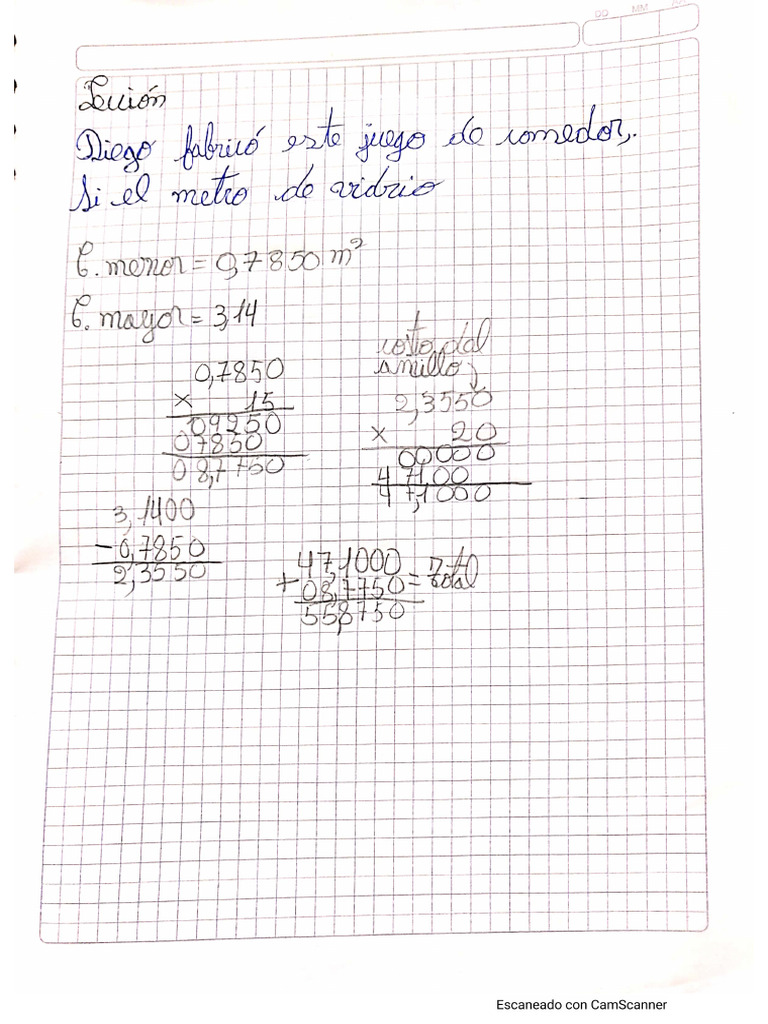 DD MM
Lección
Diego fabricó este juego de comedor,.
Si el metro de vidrio
C. menor = 0,7850 m²
C. mayor = 3,14
costo del
anillo
0,7850
× 15
09250
07850
08,7750
2,3550
× 20
00000
47100
47,1000
3,1400
- 0,7850
2,3550
47,1000
+ 08,7750 = total
55,8750
Escaneado con CamScanner